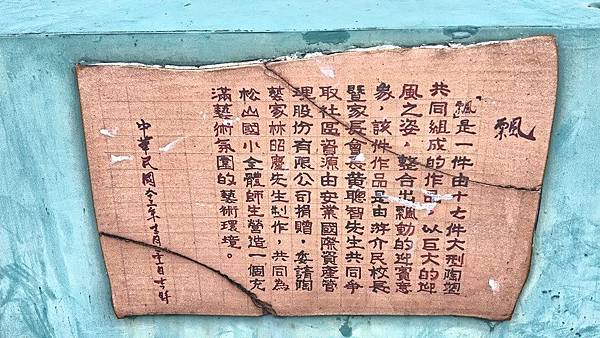 飄
「飄」是一件由十七件大型陶塑
共同組成的作品，以巨大的迎
風之姿，整合出飄動的迎賓意
象，該件作品是由游介民校長
暨家長會長黃聰智先生共同爭
取社區資源由安業國際資產管
理股份有限公司捐贈，委請陶
藝家林昭慶先生制作，共同為
松山國小全體師生營造一個充
滿藝術氛圍的藝術環境。
中華民國